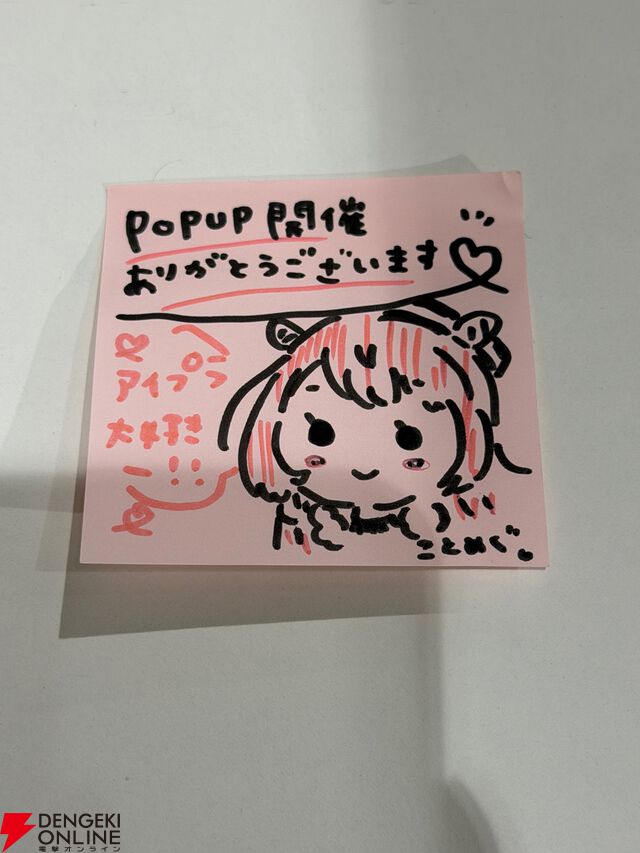 POPUP 開催
ありがとうございます
アイプラ
大好き
!!
ことめぐ。
DENGEKI
ONLINE
電撃オンライン